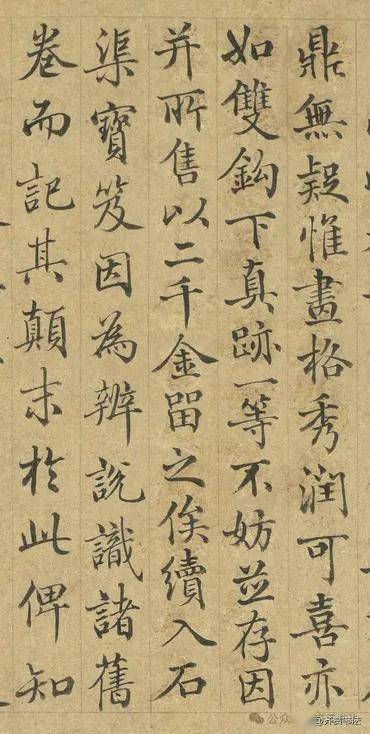 鼎無疑惟畫格秀潤可喜亦
如雙鈎下真跡一等不妨並存因
并所售以二千金留之俟續入石
渠寶笈因為辨説識諸舊
卷而記其顛末於此俾知
公众